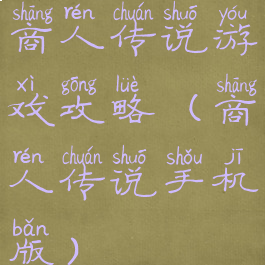 shāng rén chuán shuō yóu
商人传说游
xì gōng lüè shāng
戏攻略（商
rén chuán shuō shǒu jī
人传说手机
bǎn
版）